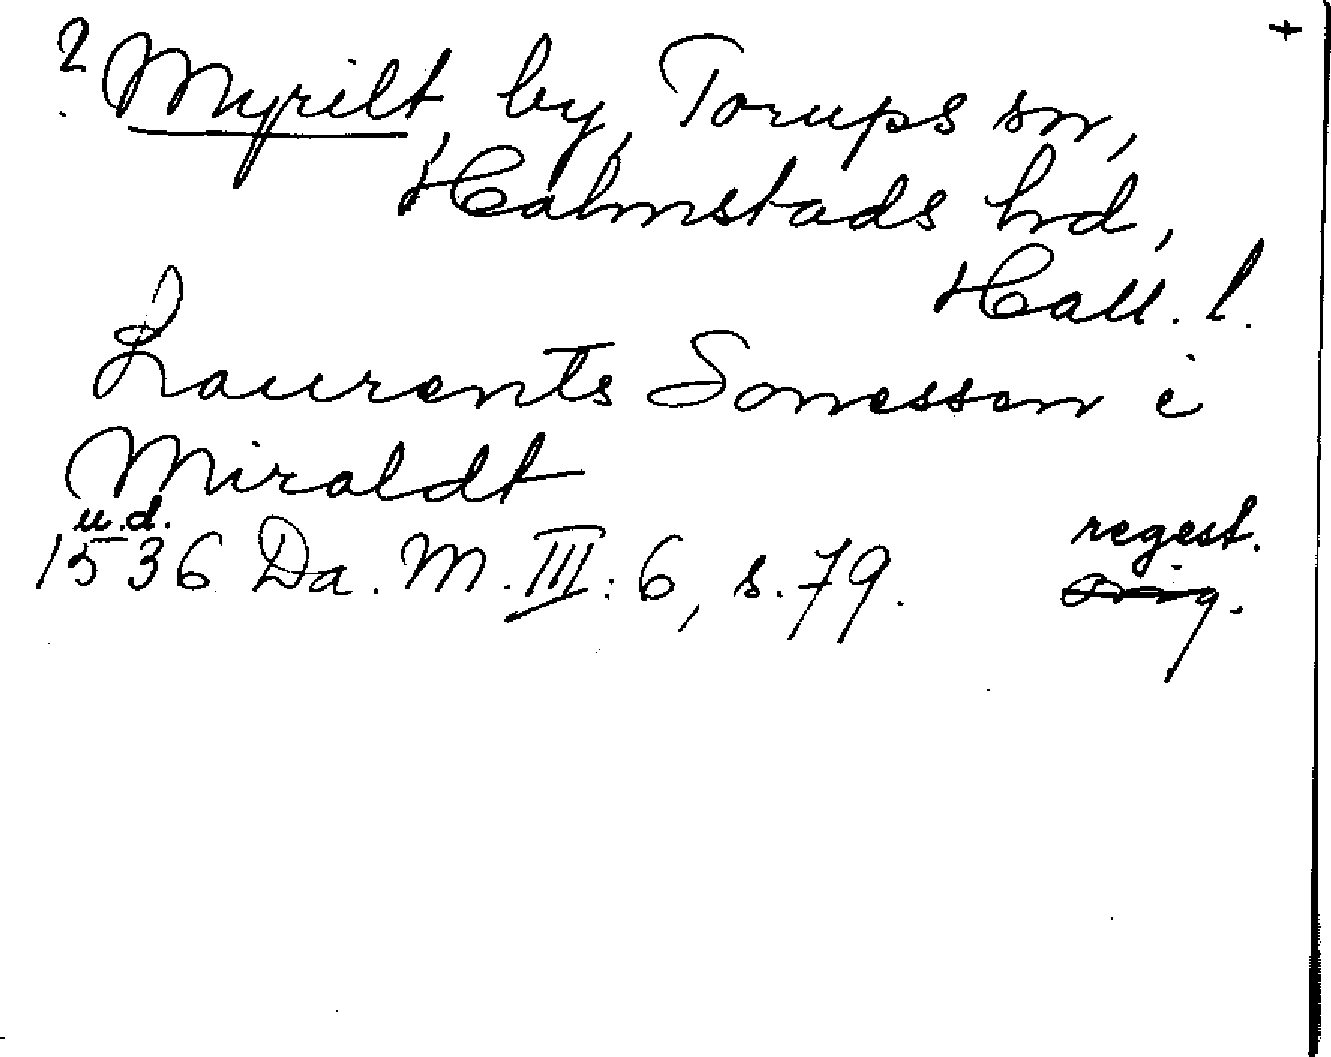 ? Myrilt, by, Torups sn, +
Halmstads hd,
Hall. l.
Laurents Sonesson i
Miraldt
u.d.
1536 Da. M. III: 6, s. 79. regest.
orig.